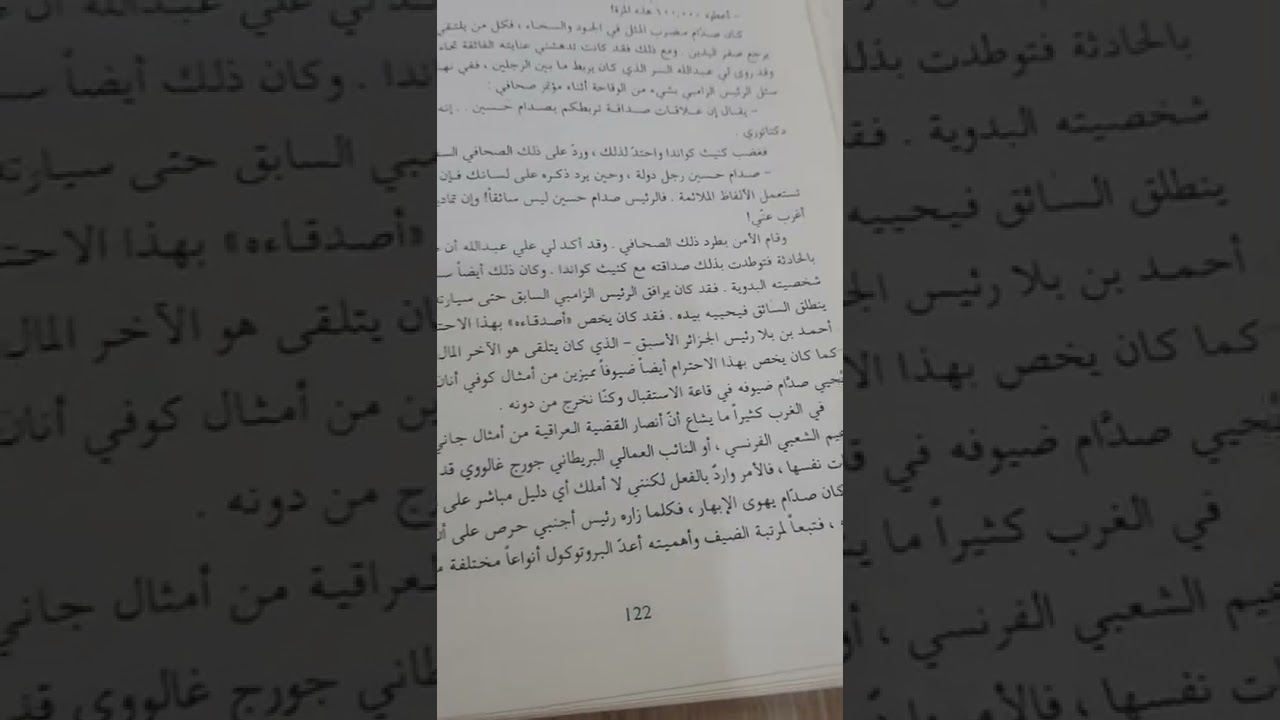 – أعطوه ١٠٠,٠٠٠ هذه المرة!
كان صدّام مضرب المثل في الجود والسخاء ، فكل من يلتقي
يرجع صفر اليدين . ومع ذلك فقد كانت تدهشني عنايته الفائقة تجاه
وقد روى لي عبدالله السر الذي كان يربط ما بين الرجلين ، ففي
سئل الرئيس الزامبي بشيء من الوقاحة أثناء مؤتمر صحافي :
– يقال إن علاقات صداقة تربطكم بصدام حسين . . إنه
دكتاتوري .
فغضب كنيث كواندا واحتدّ لذلك ، وردّ على ذلك الصحافي
– صدام حسين رجل دولة ، وحين يرد ذكره على لسانك فإن
تستعمل الألفاظ الملائمة . فالرئيس صدام حسين ليس سائقاً! وإن
أغرب عنّي!
وقام الأمن بطرد ذلك الصحافي . وقد أكد لي علي عبدالله أن
بالحادثة فتوطدت بذلك صداقته مع كنيث كواندا . وكان ذلك أيضاً
شخصيته البدوية . فقد كان يرافق الرئيس الزامبي السابق حتى سيارته
ينطلق السائق فيحييه بيده . فقد كان يخص «أصدقاءه» بهذا
أحمد بن بلا رئيس الجزائر الأسبق – الذي كان يتلقى هو الآخر المال
كما كان يخص بهذا الاحترام أيضاً ضيوفاً مميزين من أمثال كوفي أنان
يُحيي صدّام ضيوفه في قاعة الاستقبال وكنّا نخرج من دونه .
في الغرب كثيراً ما يشاع أنّ أنصار القضية العراقية من أمثال جاني
الشعبي الفرنسي ، أو النائب العمالي البريطاني جورج غالووي قد
نفسها ، فالأمر واردٌ بالفعل لكنني لا أملك أي دليل مباشر على
كان صدّام يهوى الإبهار ، فكلما زاره رئيس أجنبي حرص على
، فتبعاً لمرتبة الضيف وأهميته أعدّ البروتوكول أنواعاً مختلفة
122